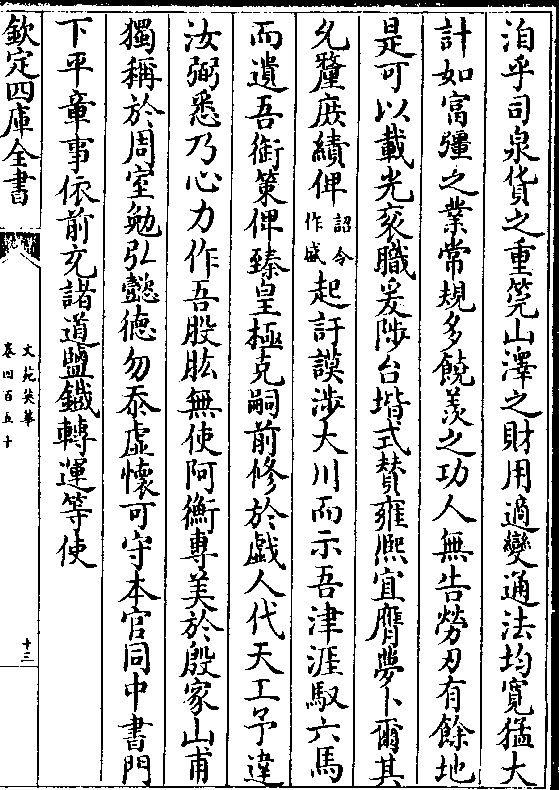 洎乎司泉貨之重筦山澤之財用適變通法均寛猛大
計如富彊之業常規多饒羨之功人無告勞刃有餘地
是可以載光衮職爰陟台堦式賛雍熈宜膺夢卜爾其
允釐庶績俾詔令作咸起訏謨涉大川而示吾津涯馭六馬
而遺吾銜策俾臻皇極克嗣前修於戲人代天工予違
汝弼悉乃心力作吾股肱無使阿衡專美於殷家山甫
獨稱於周室勉弘懿德勿忝虚懷可守本官同中書門
下平章事依前充諸道鹽鐡轉運等使
欽定四庫全書
文苑英華
卷四百五十
十三